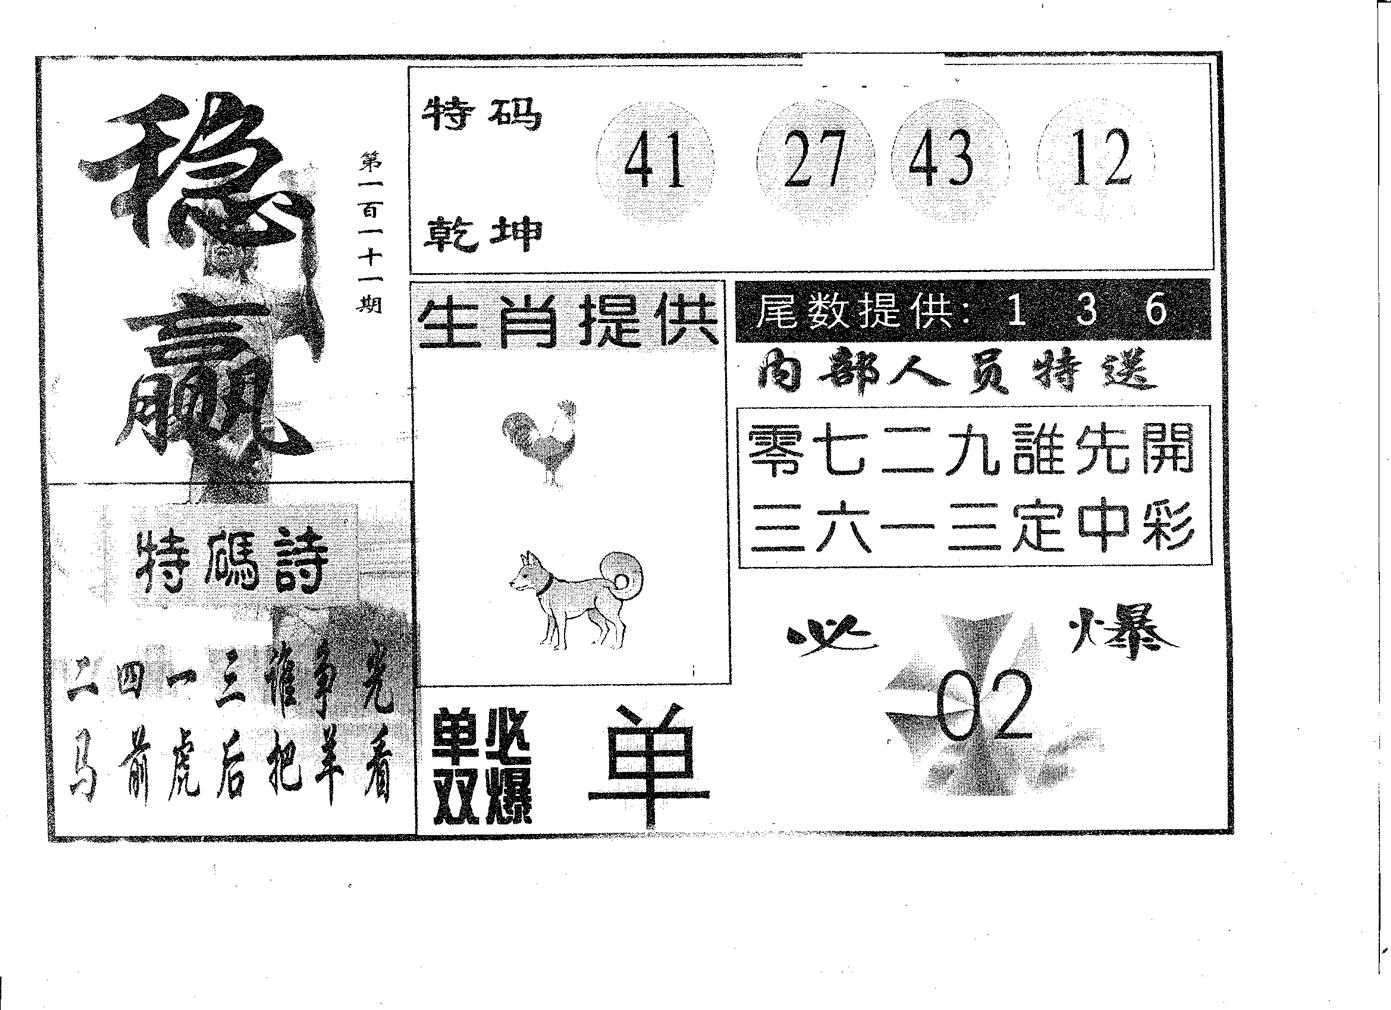 稳赢
第一百一十一期
特码 41 27 43 12
乾坤
生肖提供
尾数提供: 1 3 6
内部人员特送
零七二九誰先開
三六一三定中彩
特碼詩
二四一三谁争光
马前虎后把羊看
必爆
02
单双
必爆
单